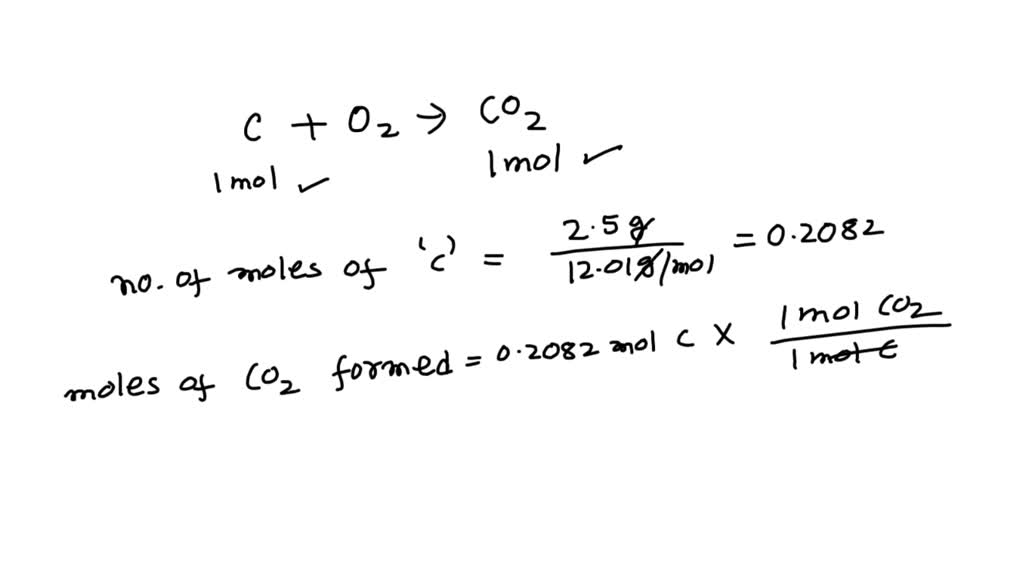 C + O₂ → CO₂
1 mol ✓ 1 mol ✓
no. of moles of 'c' = 2.5 g / 12.01 g/mol = 0.2082
moles of CO₂ formed = 0.2082 mol C × 1 mol CO₂ / 1 mol C